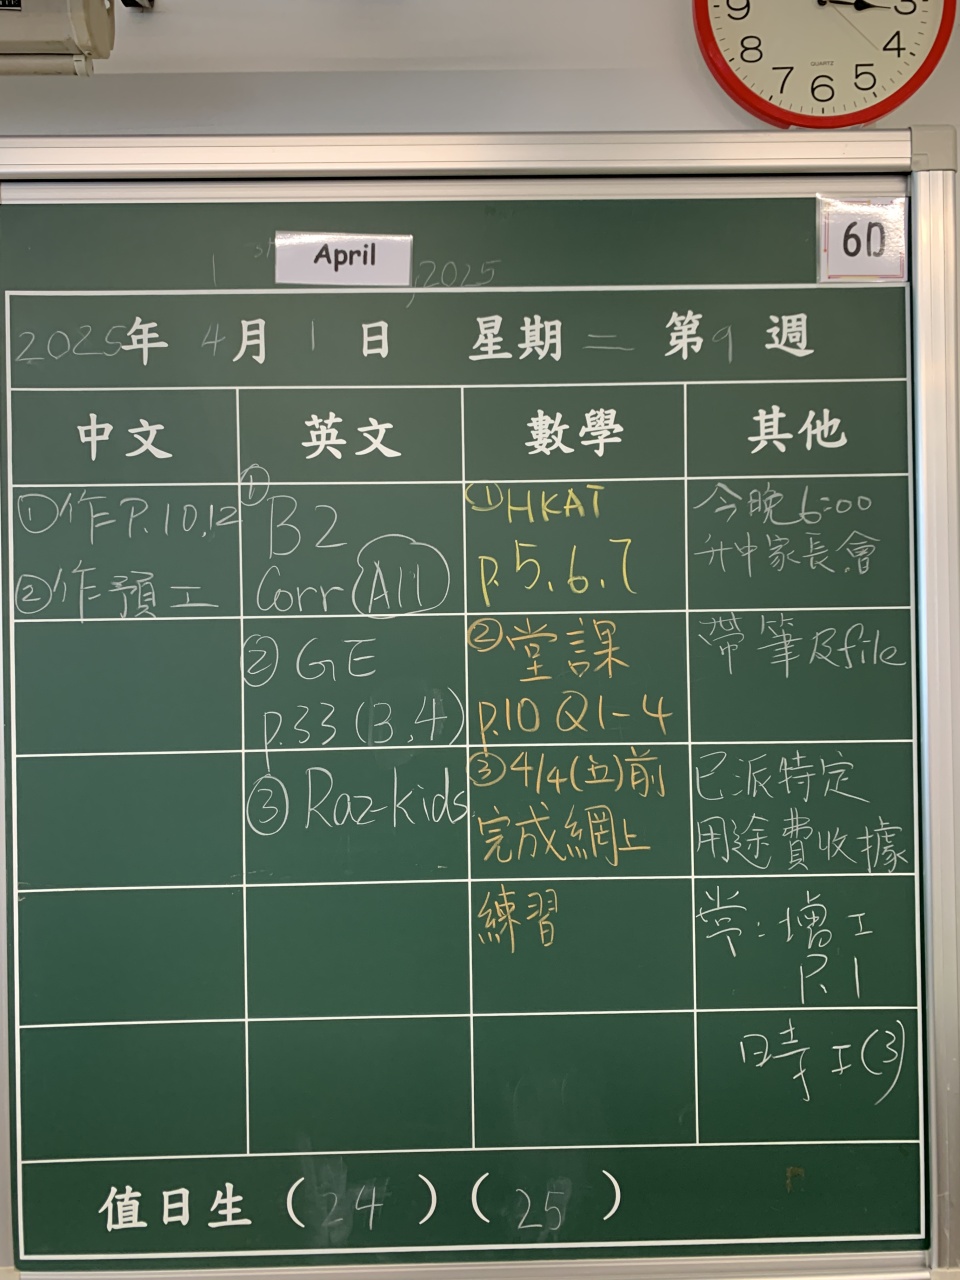 9
3
8
4
7
6
5
QUARTZ
6D
1 st April, 2025
2025年 4月 1日 星期二 第9週
中文 英文 數學 其他
①作P.10,12
②作預工
①
B2
Corr All
②GE
p.33 (3,4)
③Raz-kids
①HKAT
p.5.6.7
②堂課
p.10 Q1-4
③4/4(五)前
完成網上
練習
今晚6:00
升中家長會
帶筆及file
已派特定
用途費收據
常:增工
P.1
時工(3)
值日生 (24) (25)